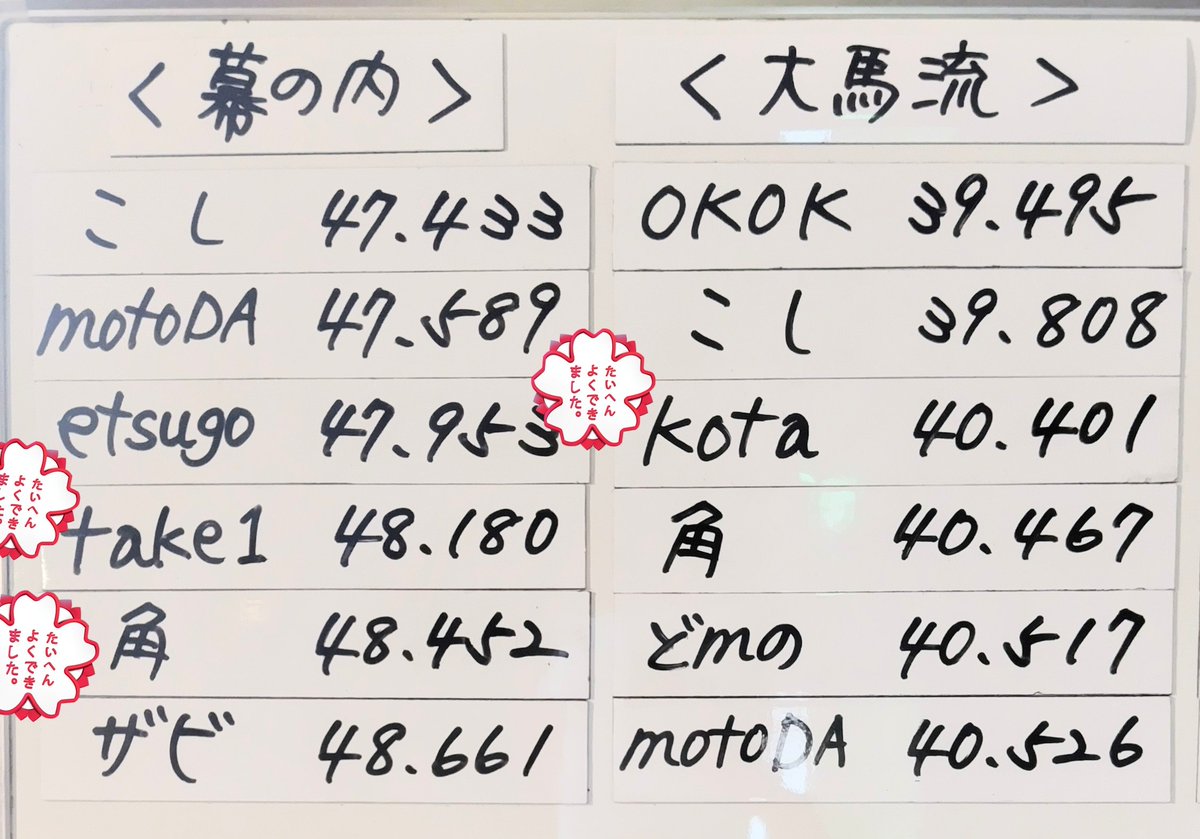 <幕の内>
こし 47.433
motoDA 47.589
etsugo 47.953
take1 48.180
角 48.452
ザビ 48.661
<大馬流>
OKOK 39.495
こし 39.808
kota 40.401
角 40.467
どmの 40.517
motoDA 40.526
たいへん
よくでき
ました。
たいへん
よくでき
ました。
たいへん
よくでき
ました。